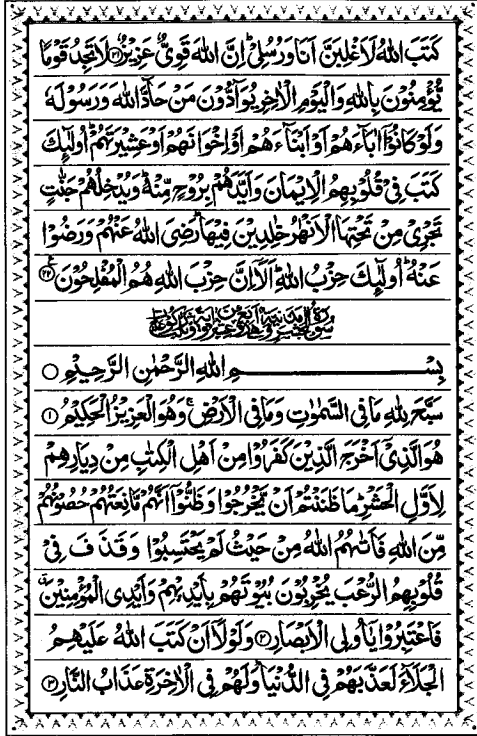 كَتَبَ اللّٰهُ لَاَغْلِبَنَّ اَنَا وَرُسُلِيْ ؕ اِنَّ اللّٰهَ قَوِيٌّ عَزِيْزٌ ﴿۲۱﴾ لَا تَجِدُ قَوْمًا
يُّؤْمِنُوْنَ بِاللّٰهِ وَالْيَوْمِ الْاٰخِرِ يُوَآدُّوْنَ مَنْ حَآدَّ اللّٰهَ وَرَسُوْلَهٗ
وَلَوْ كَانُوْۤا اٰبَآءَهُمْ اَوْ اَبْنَآءَهُمْ اَوْ اِخْوَانَهُمْ اَوْ عَشِيْرَتَهُمْ ؕ اُولٰٓئِكَ
كَتَبَ فِيْ قُلُوْبِهِمُ الْاِيْمَانَ وَاَيَّدَهُمْ بِرُوْحٍ مِّنْهُ ؕ وَيُدْخِلُهُمْ جَنّٰتٍ
تَجْرِيْ مِنْ تَحْتِهَا الْاَنْهٰرُ خٰلِدِيْنَ فِيْهَا ؕ رَضِيَ اللّٰهُ عَنْهُمْ وَرَضُوْا
عَنْهُ ؕ اُولٰٓئِكَ حِزْبُ اللّٰهِ ؕ اَلَاۤ اِنَّ حِزْبَ اللّٰهِ هُمُ الْمُفْلِحُوْنَ ﴿۲۲﴾
بِسْمِ اللّٰهِ الرَّحْمٰنِ الرَّحِيْمِ
سَبَّحَ لِلّٰهِ مَا فِي السَّمٰوٰتِ وَمَا فِي الْاَرْضِ ۚ وَهُوَ الْعَزِيْزُ الْحَكِيْمُ ﴿۱﴾
هُوَ الَّذِيْۤ اَخْرَجَ الَّذِيْنَ كَفَرُوْا مِنْ اَهْلِ الْكِتٰبِ مِنْ دِيَارِهِمْ
لِاَوَّلِ الْحَشْرِ ؕ مَا ظَنَنْتُمْ اَنْ يَّخْرُجُوْا وَظَنُّوْۤا اَنَّهُمْ مَّانِعَتُهُمْ حُصُوْنُهُمْ
مِّنَ اللّٰهِ فَاَتٰىهُمُ اللّٰهُ مِنْ حَيْثُ لَمْ يَحْتَسِبُوْا وَقَذَفَ فِيْ
قُلُوْبِهِمُ الرُّعْبَ يُخْرِبُوْنَ بُيُوْتَهُمْ بِاَيْدِيْهِمْ وَاَيْدِي الْمُؤْمِنِيْنَ ۗ
فَاعْتَبِرُوْا يٰۤاُولِي الْاَبْصَارِ ﴿۲﴾ وَلَوْلَاۤ اَنْ كَتَبَ اللّٰهُ عَلَيْهِمُ
الْجَلَآءَ لَعَذَّبَهُمْ فِي الدُّنْيَا ؕ وَلَهُمْ فِي الْاٰخِرَةِ عَذَابُ النَّارِ ﴿۳﴾